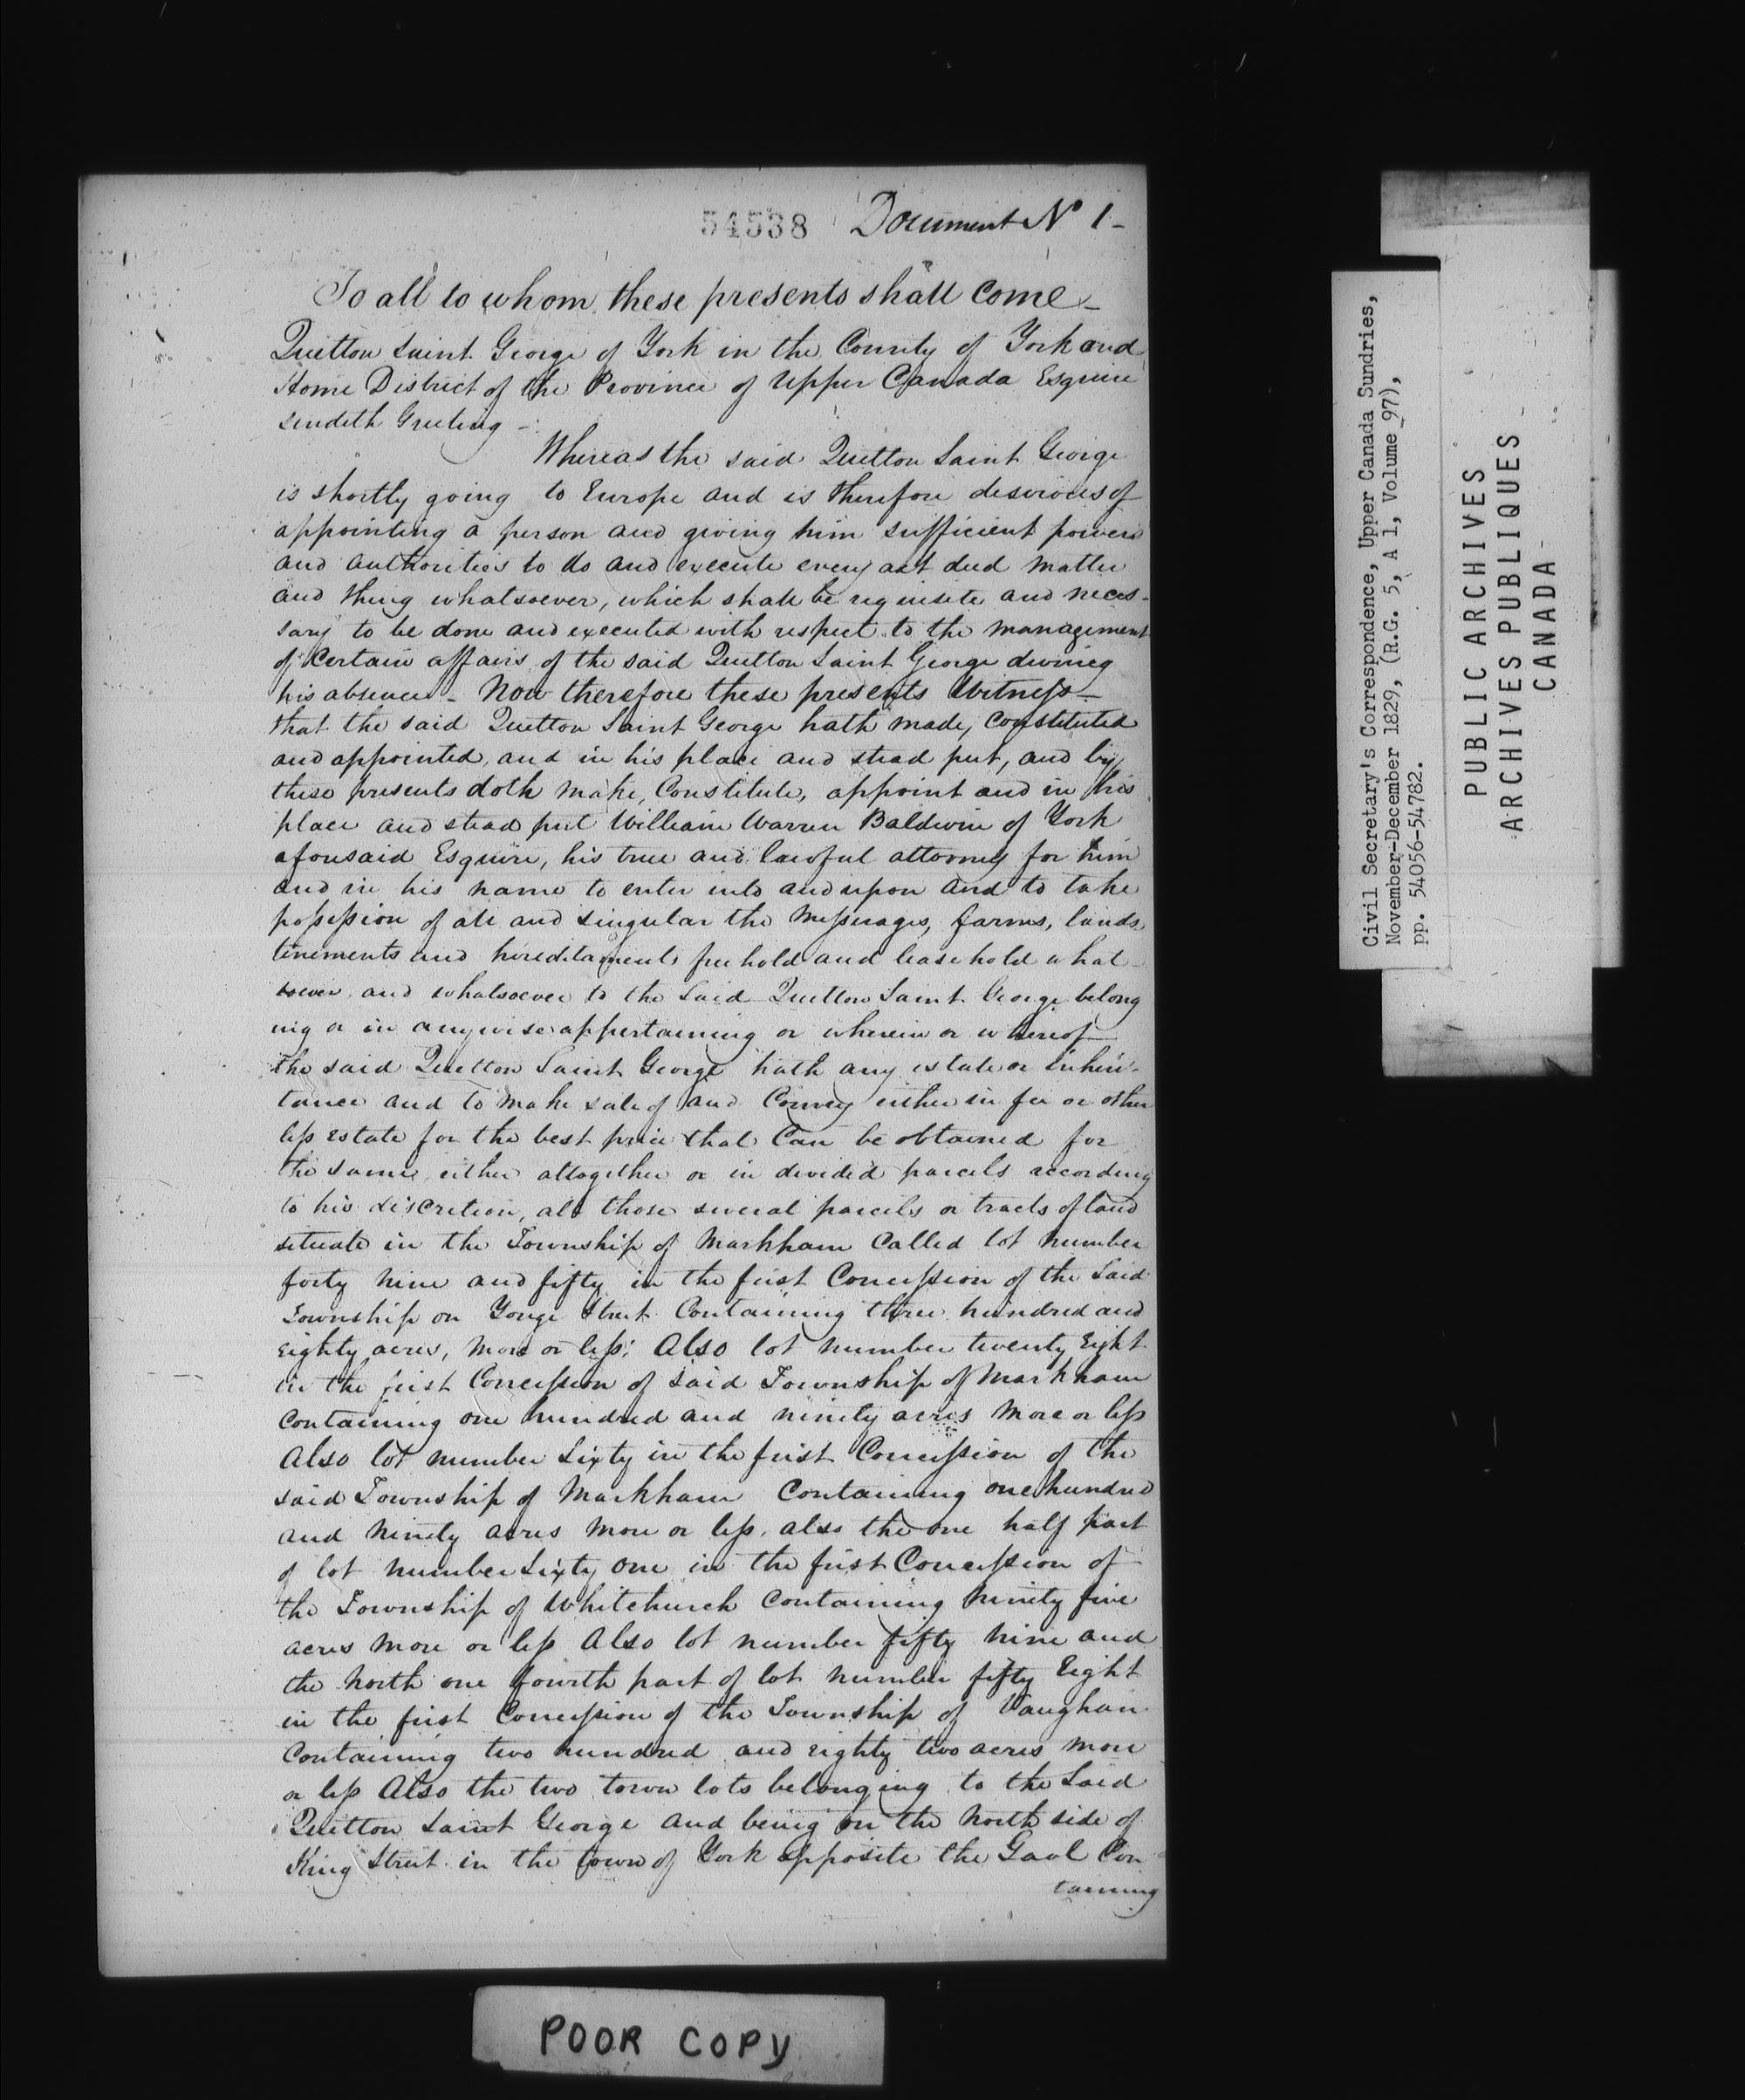 54538 Document No 1-
To all to whom these presents shall come-
Quetton Saint George of York in the County of York and
Home District of the Province of Upper Canada Esquire
sendeth Greeting -
Whereas the said Quetton Saint George
is shortly going to Europe and is therefore desirous of
appointing a person and giving him sufficient powers
and authorities to do and execute every act deed matter
and thing whatsoever, which shall be requisite and neces-
sary to be done and executed with respect to the management
of certain affairs of the said Quetton Saint George during
his absence - Now therefore these presents Witness-
that the said Quetton Saint George hath made, Constituted
and appointed, and in his place and stead put, and by
these presents doth make, Constitute, appoint and in his
place and stead put William Warren Baldwin of York
aforesaid Esquire, his true and lawful attorney for him
and in his name to enter into and upon and to take
possession of all and singular the Messuages, farms, lands
tenements and hereditaments freehold and leasehold what-
soever and whatsoever to the said Quetton Saint George belong
ing or in anywise appertaining or wherein or whereof
the said Quetton Saint George hath any estate or inheri-
tance and to make sale of and Convey either in fee or other
less estate for the best price that Can be obtained for
the same, either altogether or in divided parcels according
to his discretion, all those several parcels or tracts of land
situate in the Township of Markham Called lot number
forty nine and fifty in the first Concession of the said
Township on Yonge Street Containing three hundred and
eighty acres, more or less; Also lot number twenty Eight
in the first Concession of said Township of Markham
Containing one hundred and ninety acres More or less
Also lot number Sixty in the first Concession of the
said Township of Markham Containing one hundred
and Ninety acres more or less. also the one half part
of lot number Sixty one in the first Concession of
the Township of Whitchurch Containing Ninety five
acres more or less Also lot number fifty nine and
the North one fourth part of lot number fifty Eight
in the first Concession of the Township of Vaughan
Containing two hundred and eighty two acres more
or less Also the two town lots belonging to the Said
Quetton Saint George and being on the North side of
King Street in the town of York opposite the Gaol Con
taining
POOR COPY
Civil Secretary's Correspondence, Upper Canada Sundries,
November-December 1829, (R.G. 5, A 1, Volume 97),
pp. 54056-54782.
PUBLIC ARCHIVES
ARCHIVES PUBLIQUES
CANADA